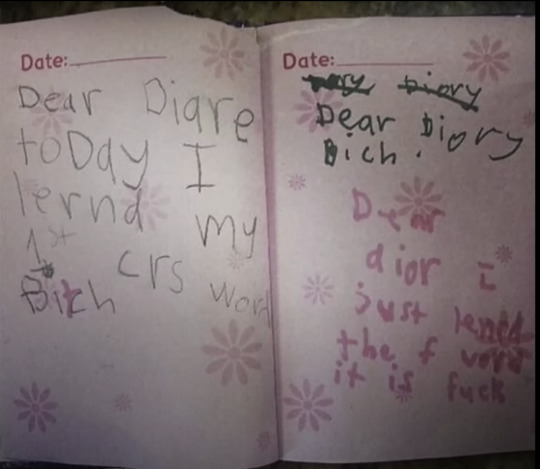 Date:
Dear Diare
toDay I
lernd my
1st crs word
Bitch
Date:
Dear Diory
Bich.
Dear
dior I
just lernd
the f word
it is fuck